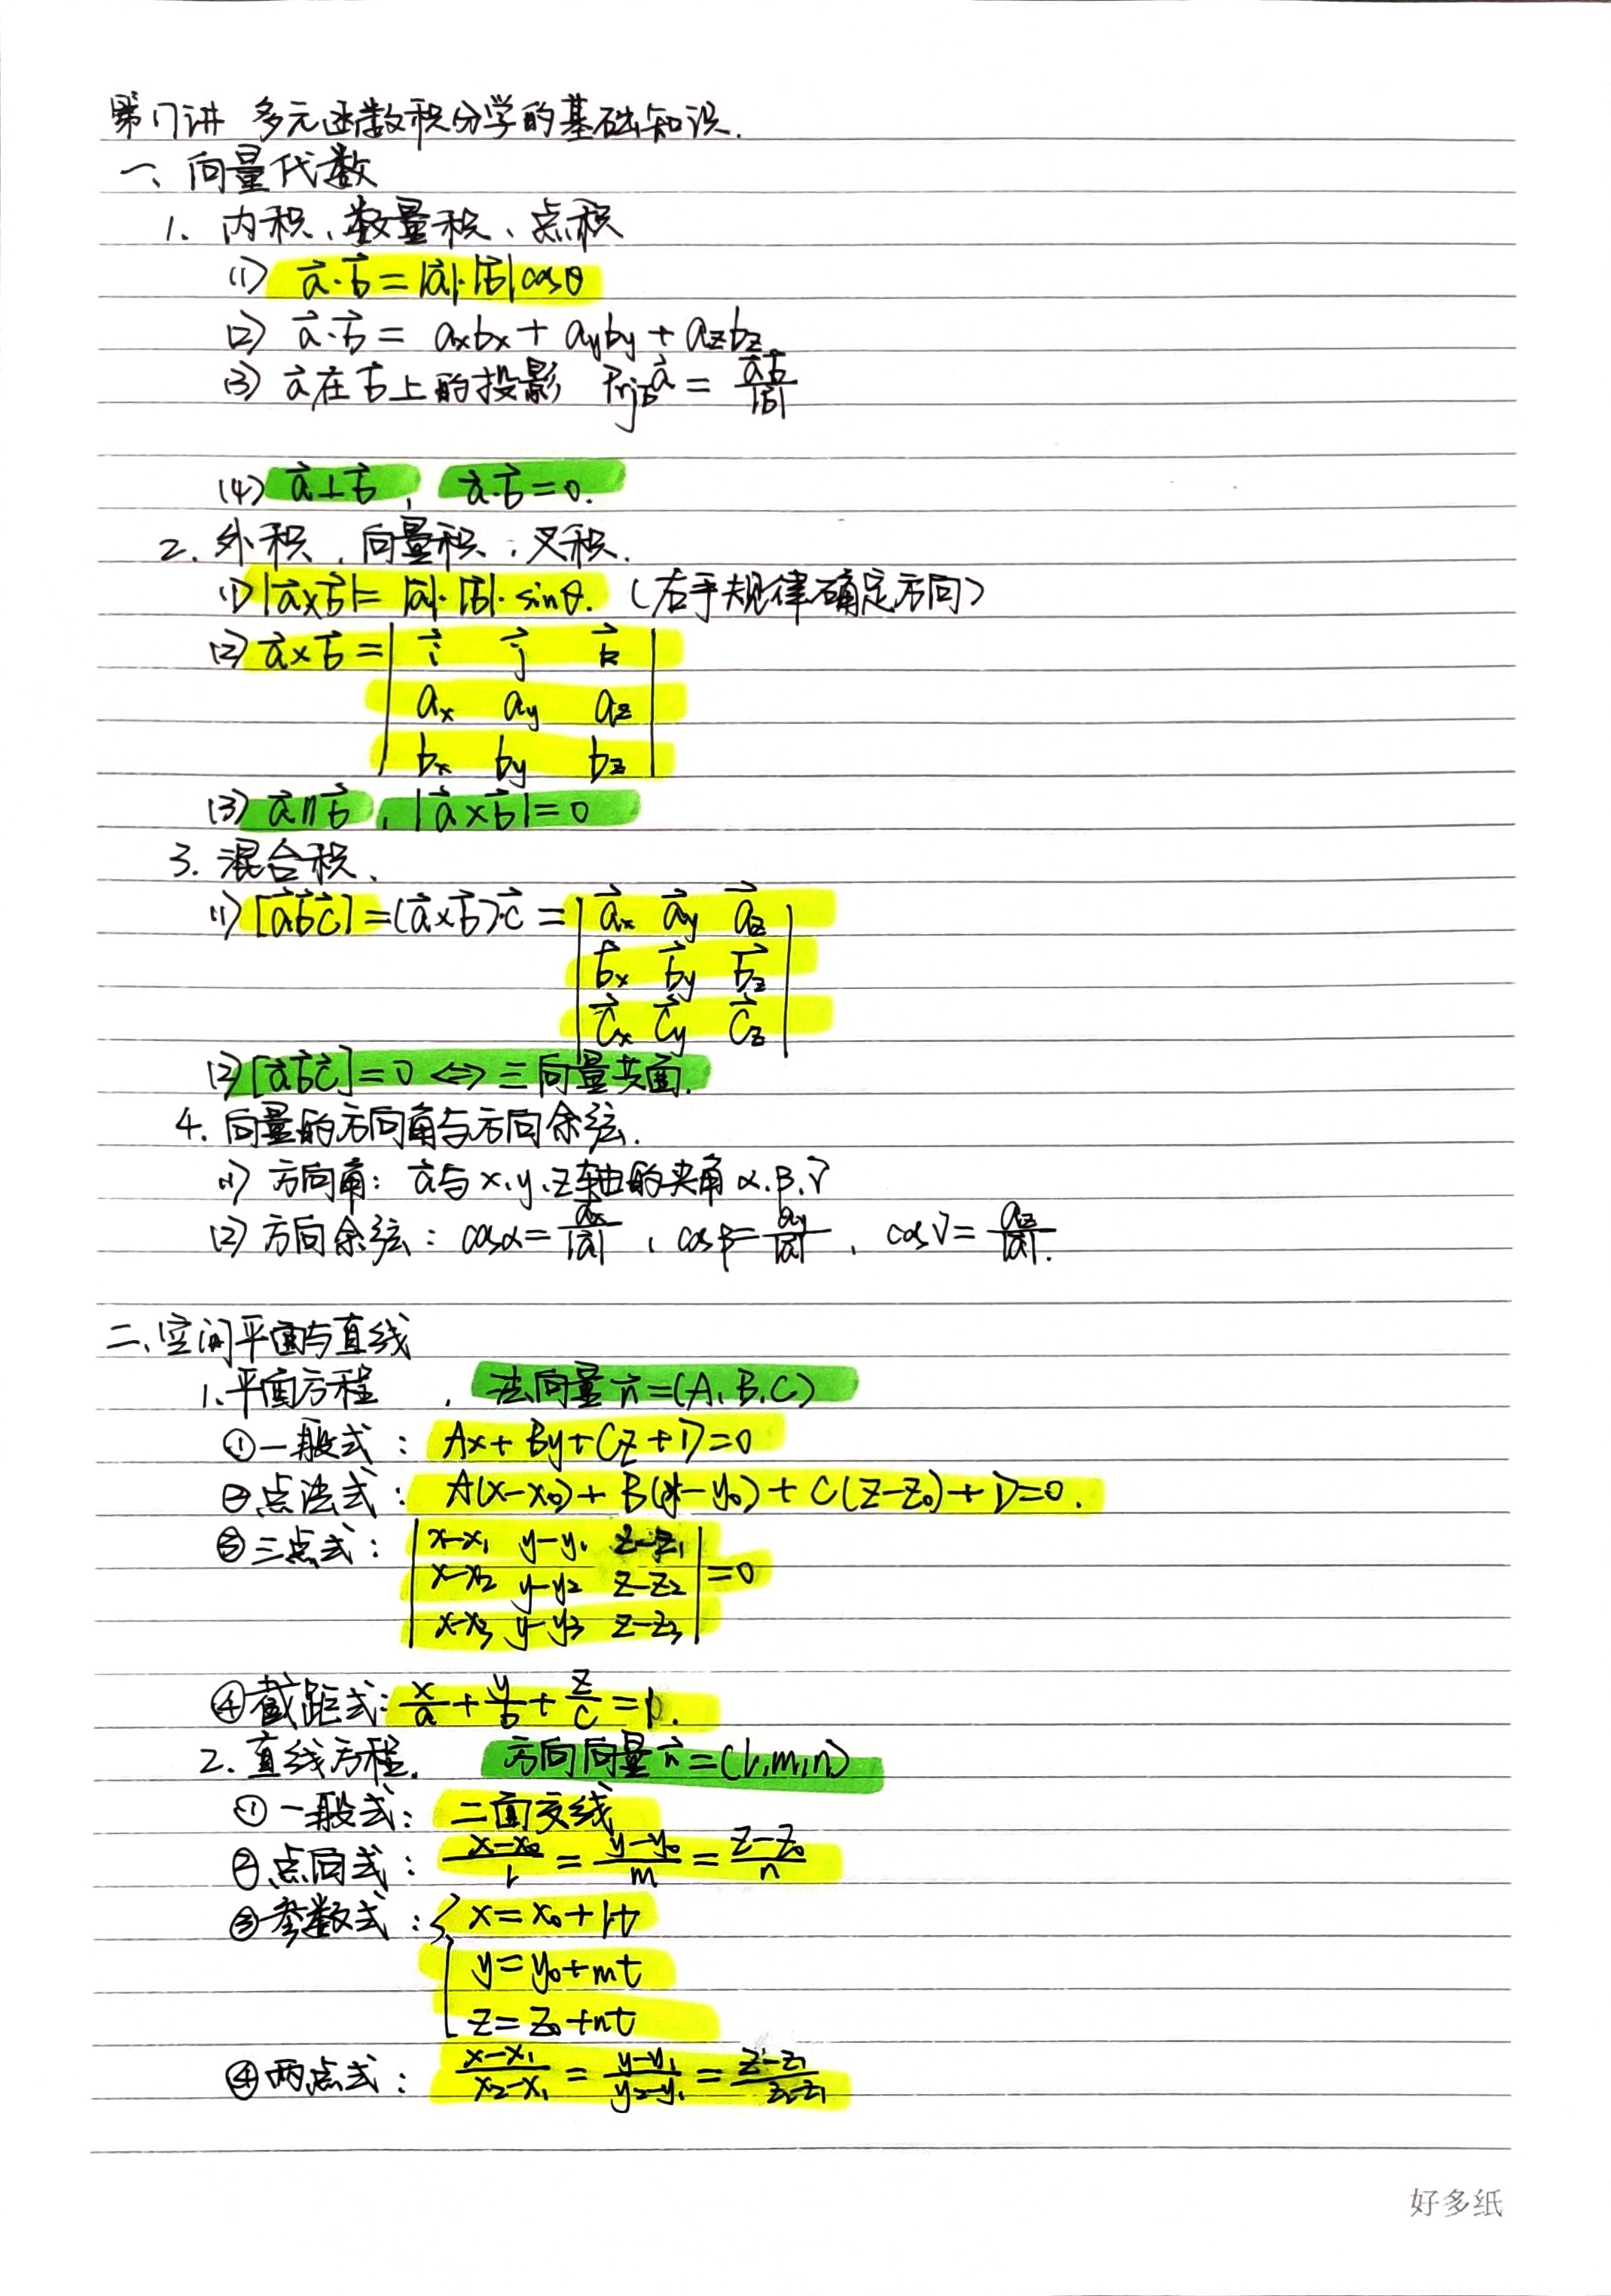 第17讲 多元函数积分学的基础知识.
一、向量代数
1. 内积、数量积、点积
(1) a⃗·b⃗ = |a⃗|·|b⃗|cosθ
(2) a⃗·b⃗ = axbx + ayby + azbz
(3) a⃗在b⃗上的投影 Prjb⃗a⃗ = a⃗b⃗/|b⃗|
(4) a⃗⊥b⃗, a⃗·b⃗=0.
2. 外积、向量积、叉积.
(1) |a⃗×b⃗|= |a⃗|·|b⃗|·sinθ. (右手规律确定方向)
(2) a⃗×b⃗ = | i⃗ j⃗ k⃗ |
| ax ay az |
| bx by bz |
(3) a⃗∥b⃗, |a⃗×b⃗|=0
3. 混合积、
(1) [a⃗b⃗c⃗] = (a⃗×b⃗)·c⃗ = | a⃗x a⃗y a⃗z |
| b⃗x b⃗y b⃗z |
| c⃗x c⃗y c⃗z |
(2) [a⃗b⃗c⃗]=0 ⇔ 三向量共面.
4. 向量的方向角与方向余弦.
(1) 方向角: a⃗与x、y、z轴的夹角α、β、γ
(2) 方向余弦: cosα=ax/|a⃗|, cosβ=ay/|a⃗|, cosγ=az/|a⃗|.
二、空间平面与直线
1. 平面方程, 法向量n⃗=(A,B,C)
①一般式: Ax+By+Cz+D=0
②点法式: A(x-x0)+B(y-y0)+C(z-z0)+D=0.
③三点式: | x-x1 y-y1 z-z1 |
| x-x2 y-y2 z-z2 | =0
| x-x3 y-y3 z-z3 |
④截距式: x/a + y/b + z/c = 1.
2. 直线方程. 方向向量n⃗=(l,m,n)
①一般式: 二面交线
②点向式: (x-x0)/l = (y-y0)/m = (z-z0)/n
③参数式: { x=x0+lt
y=y0+mt
z=z0+nt
④两点式: (x-x1)/(x2-x1) = (y-y1)/(y2-y1) = (z-z1)/(z2-z1)
好多纸